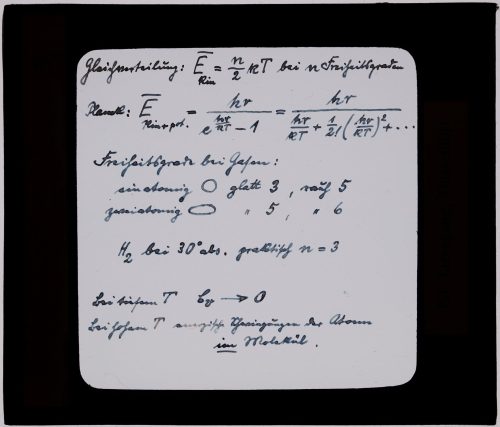 Gleichverteilung: E̅ kin = n/2 kT bei n Freiheitsgraden
Planck: E̅ kin+pot. = hν / (e^(hν/kT) − 1) = hν / (hν/kT + 1/2! (hν/kT)² + ...)
Freiheitsgrade bei Gasen:
einatomig ○ glatt 3, rauh 5
zweiatomig ⬭ " 5, " 6
H₂ bei 30° abs. praktisch n = 3
bei tiefem T Cᵥ → 0
bei hohem T Schwingungen der Atome
im Molekül.